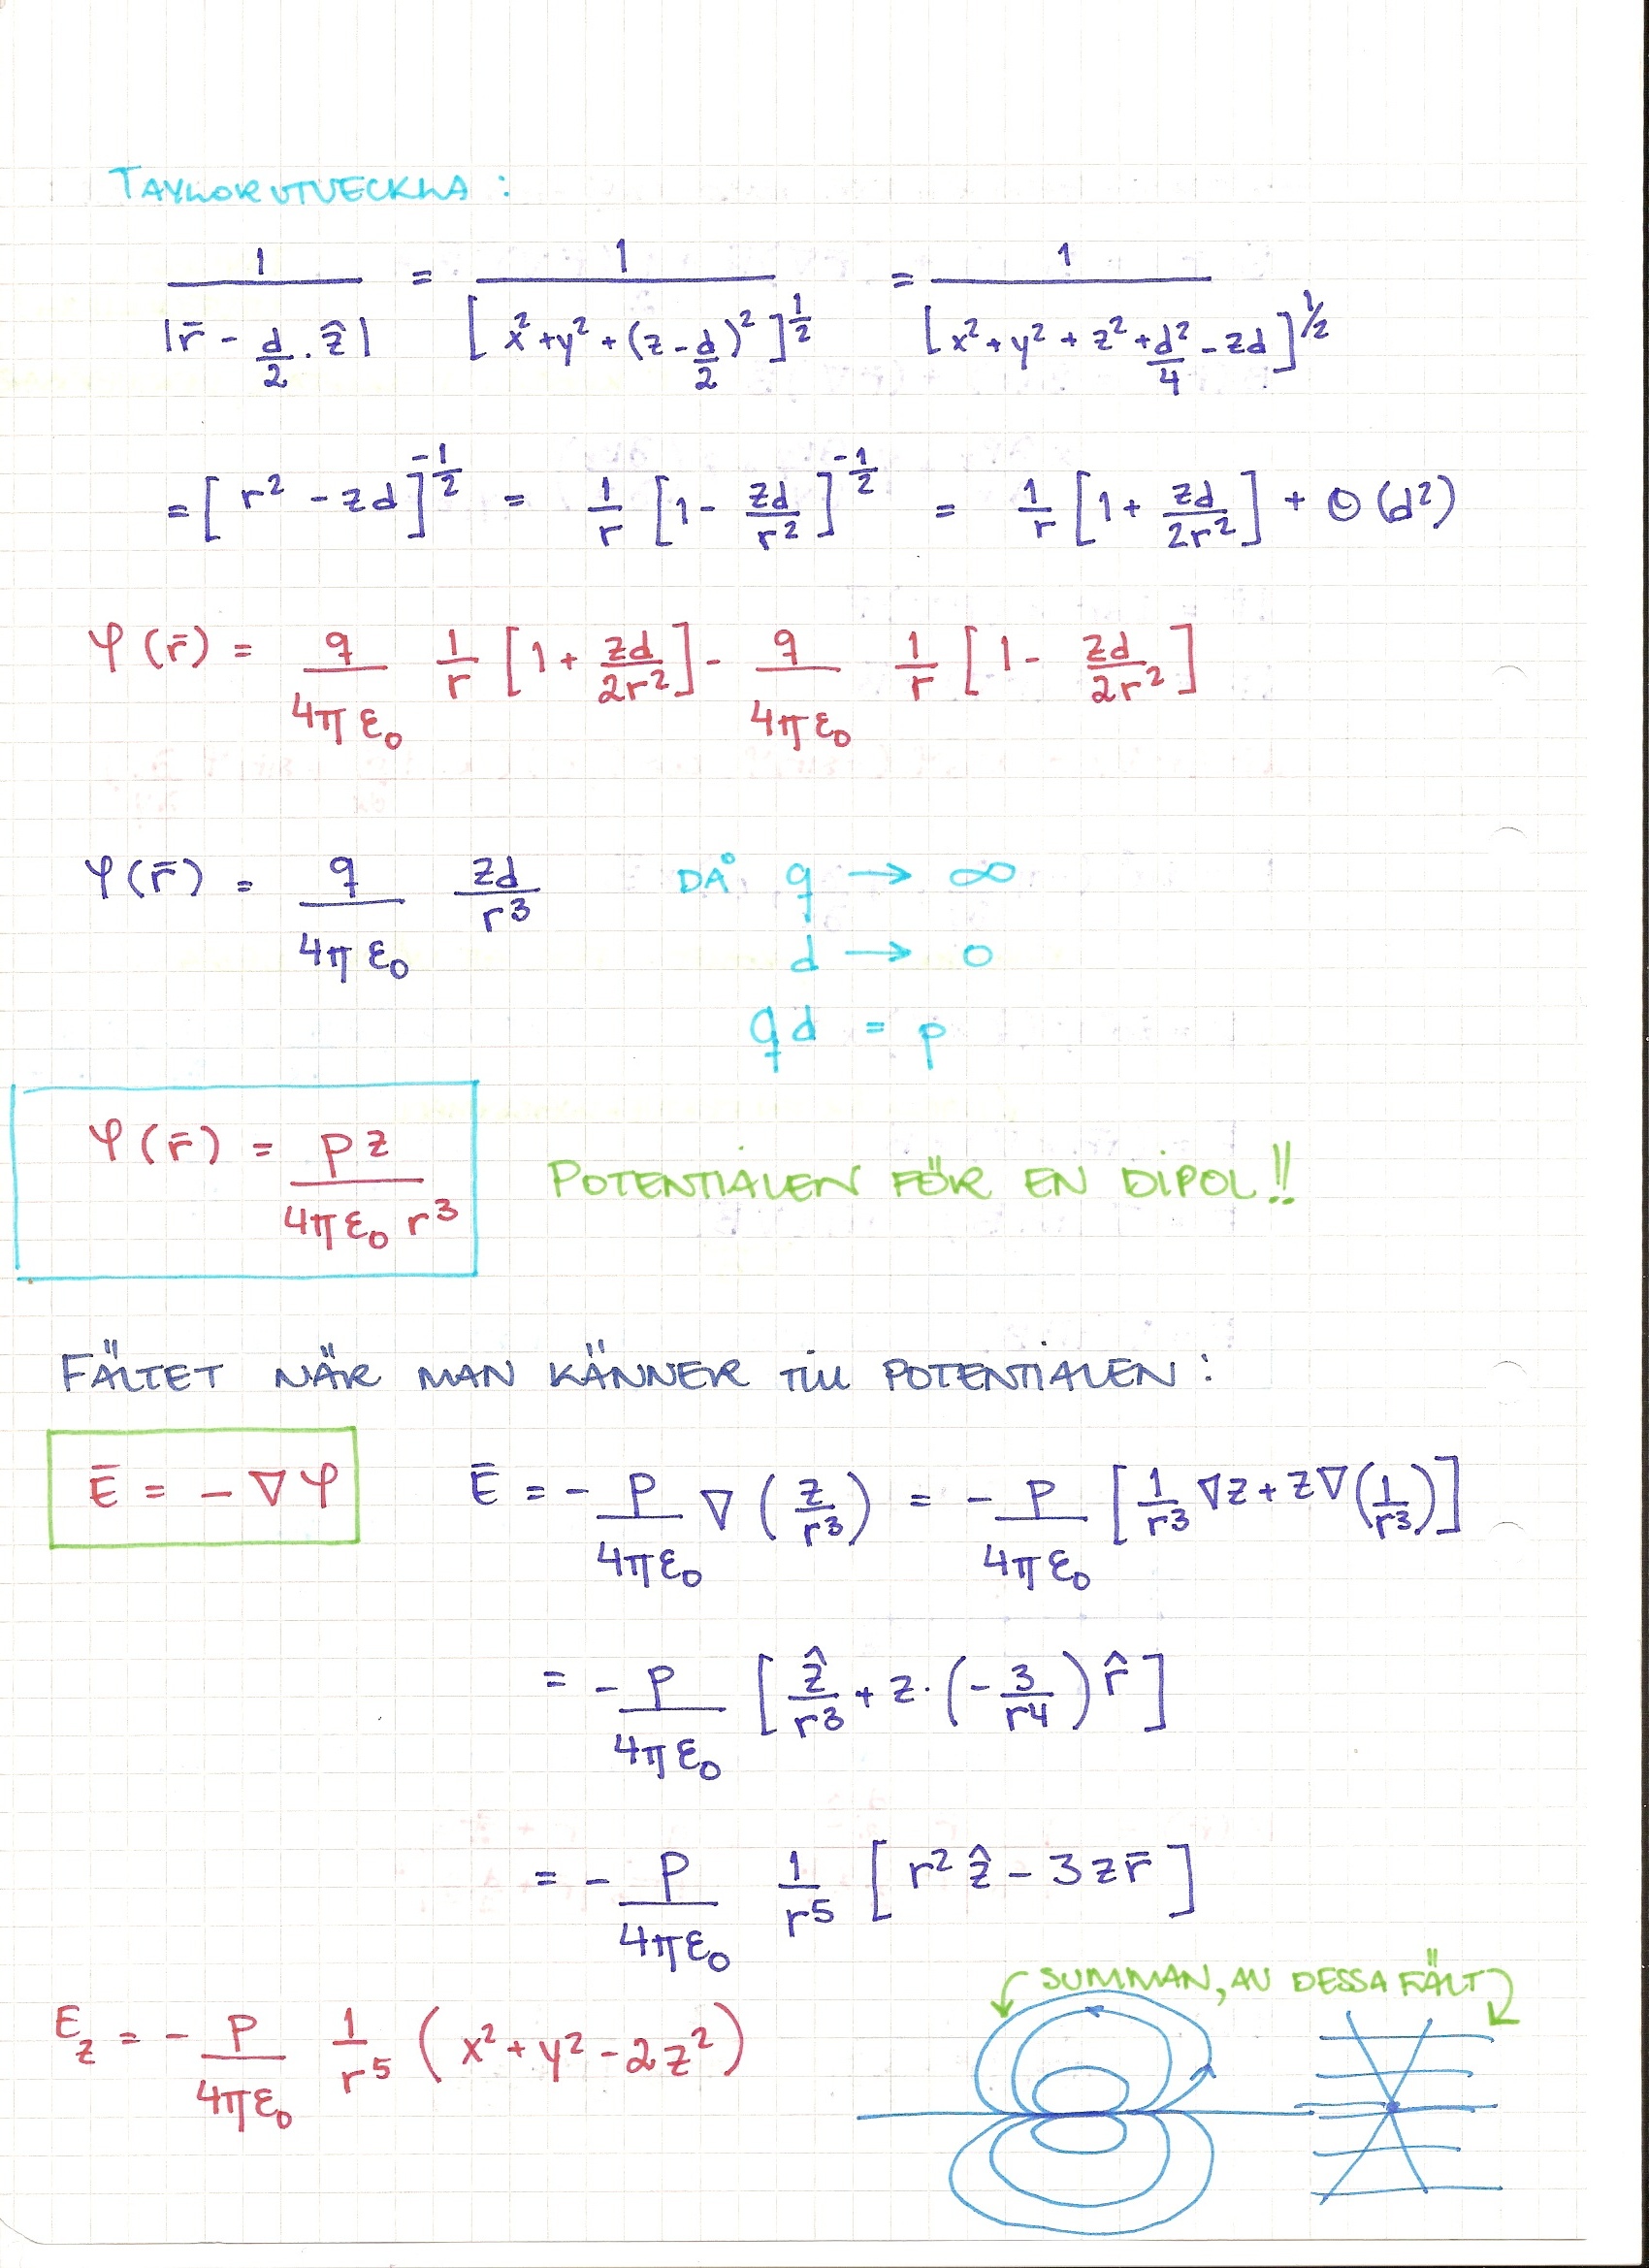 TAYLORUTVECKLA:
1/|r̄ - d/2 · ẑ| = 1/[x² + y² + (z - d/2)²]^½ = 1/[x² + y² + z² + d²/4 - zd]^½
= [r² - zd]^-½ = 1/r [1 - zd/r²]^-½ = 1/r [1 + zd/2r²] + O(d²)
φ(r̄) = q/4πε₀ 1/r [1 + zd/2r²] - q/4πε₀ 1/r [1 - zd/2r²]
φ(r̄) = q/4πε₀ zd/r³ DÅ q → ∞
d → 0
qd = p
φ(r̄) = pz/4πε₀r³ POTENTIALEN FÖR EN DIPOL!!
FÄLTET NÄR MAN KÄNNER TILL POTENTIALEN:
Ē = -∇φ Ē = - p/4πε₀ ∇(z/r³) = - p/4πε₀ [1/r³ ∇z + z∇(1/r³)]
= - p/4πε₀ [ẑ/r³ + z·(-3/r⁴) r̂]
= - p/4πε₀ 1/r⁵ [r²ẑ - 3zr̄]
SUMMAN, AV DESSA FÄLT
E_z = - p/4πε₀ 1/r⁵ (x² + y² - 2z²)